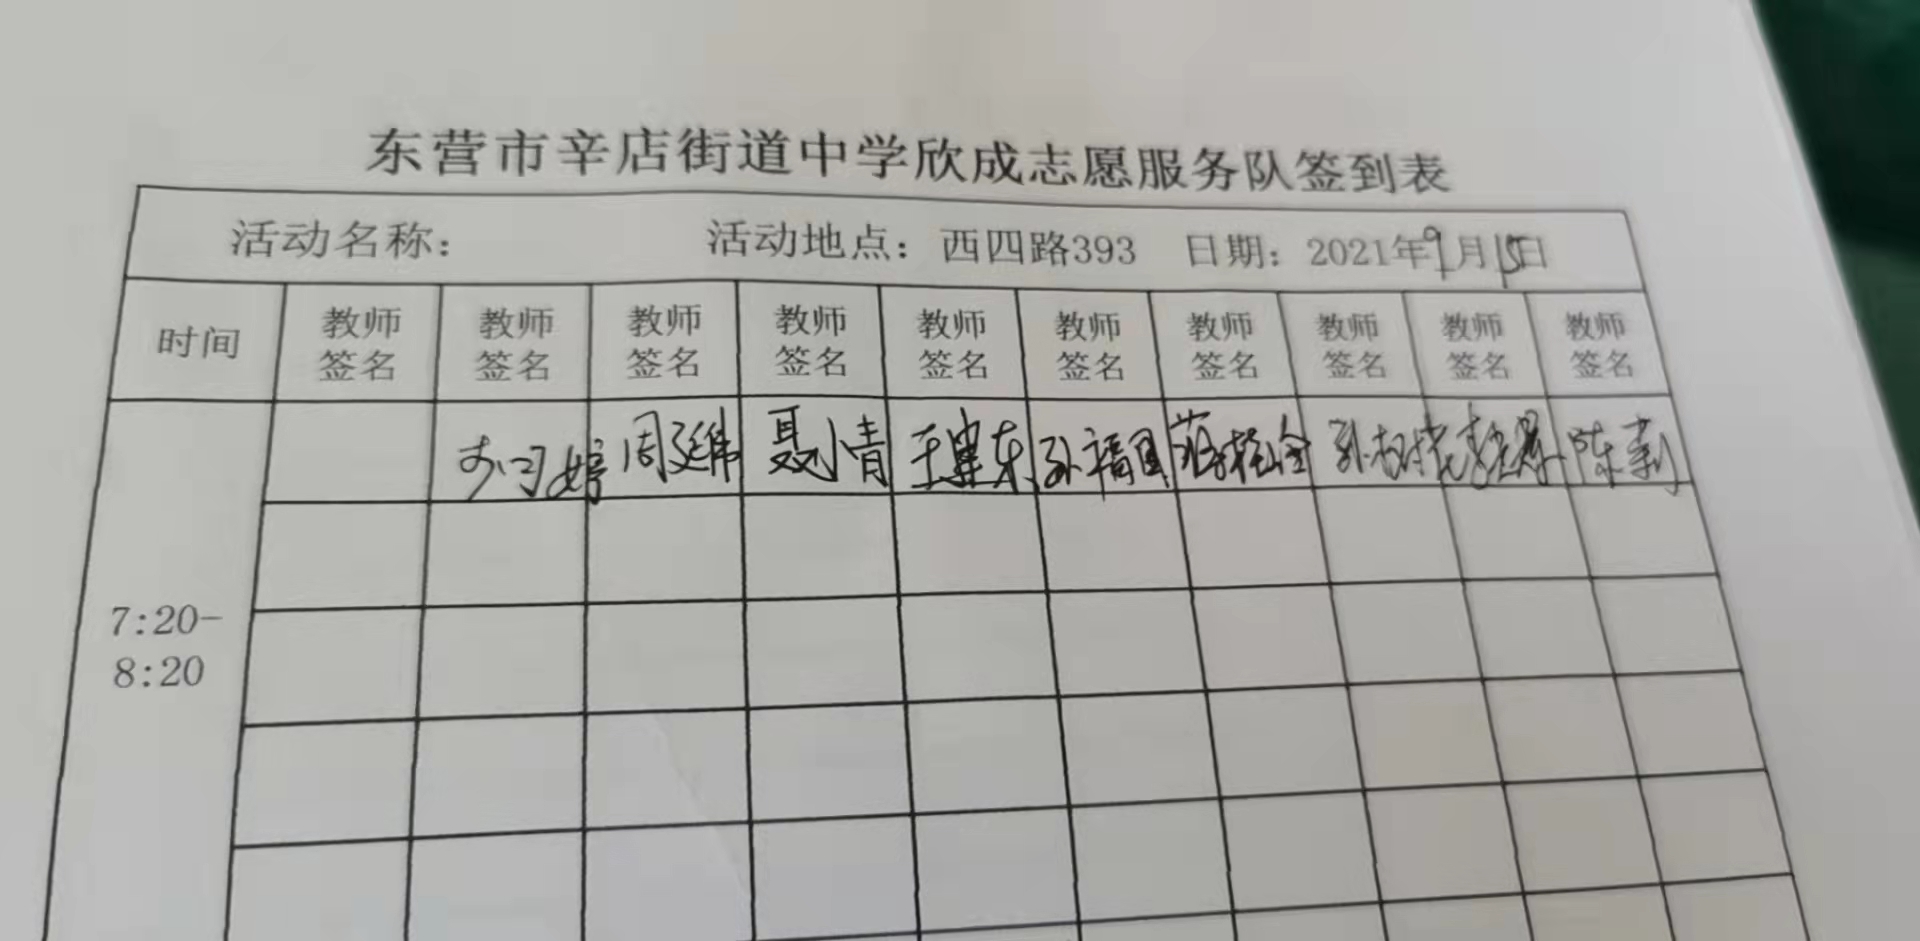 东营市辛店街道中学欣成志愿服务队签到表
活动名称： 活动地点：西四路393 日期：2021年9月15日
时间 教师签名 教师签名 教师签名 教师签名 教师签名 教师签名 教师签名 教师签名 教师签名 教师签名
周廷伟 聂情 王建东 孙福国 陈莉
7:20-
8:20